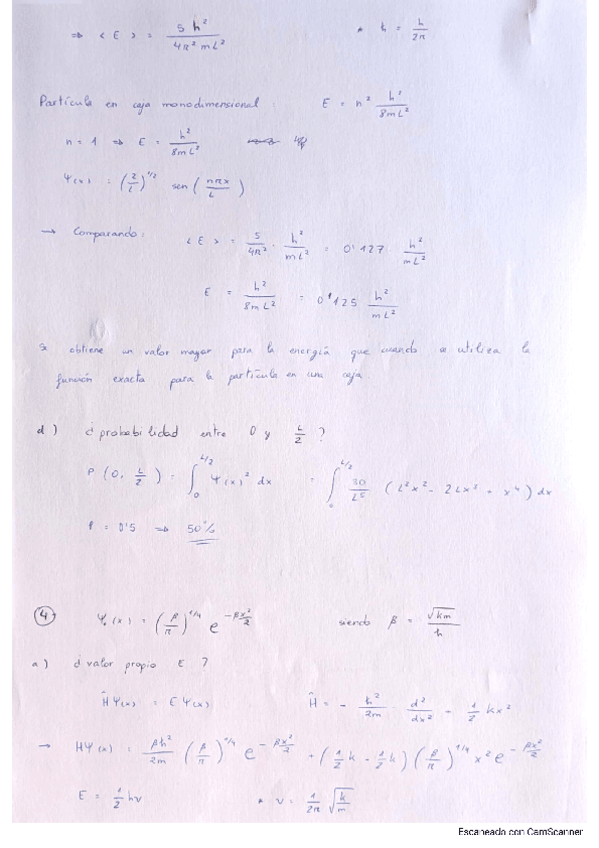 ⇒ < E > = 5 h² / 4π² m L² * ħ = h / 2π
Partícula en caja monodimensional: E = n² h² / 8mL²
n = 1 ⇒ E = h² / 8mL²
Ψ(x) = (2/L)^1/2 sen (nπx / L)
→ Comparando: < E > = 5 / 4π² · h² / mL² = 0'127 h² / mL²
E = h² / 8mL² = 0'125 h² / mL²
Se obtiene un valor mayor para la energía que cuando se utiliza la
función exacta para la partícula en una caja.
d) ¿probabilidad entre 0 y L/2 ?
P (0, L/2) = ∫₀^L/2 Ψ(x)² dx = ∫₀^L/2 30 / L⁵ (L²x² - 2Lx³ + x⁴) dx
P = 0'5 ⇒ 50%
④ Ψ₀(x) = (β/π)^1/4 e^-βx²/2 siendo β = √km / ħ
a) ¿valor propio E ?
Ĥ Ψ(x) = E Ψ(x) Ĥ = - ħ² / 2m · d² / dx² + 1/2 kx²
→ HΨ(x) = βħ² / 2m (β/π)^1/4 e^-βx²/2 + (1/2 k - 1/2 k) (β/π)^1/4 x² e^-βx²/2
E = 1/2 hν * ν = 1/2π √k/m
Escaneado con CamScanner